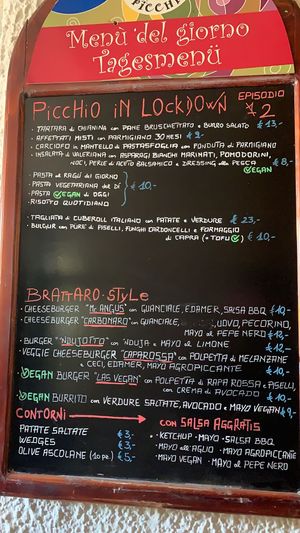 PICCHI
Menù del giorno
Tagesmenü
PiCCHiO iN LOCKDOWN EPISODIO #2
· TARTARA di CHIANINA con PANE BRUSCHETTATO e BURRO SALATO €13,-
· AFFETTATI MISTI con PARMIGIANO 30 MESI €9-
· CARCIOFO in MANTELLO di PASTASFOGLIA con FONDUTA di PARMIGIANO
· INSALATA di VALERIANA con ASPARAGI BIANCHI MARINATI, POMODORINI,
NOCI, PERLE di ACETO BALSAMICO e DRESSING alla PESCA €8-
VEGAN
· PASTA al RAGÙ del GIORNO
· PASTA VEGETARIANA del DÌ
· PASTA VEGAN di OGGI
· RISOTTO QUOTIDIANO
€10,-
· TAGLIATA di CUBEROLL ITALIANO con PATATE e VERDURE €23,-
· BULGUR con PURE di PISELLI, FUNGHI CARDONCELLI e FORMAGGIO
di CAPRA (o TOFU) €10,-
BRATTARO-STyLe
· CHEESEBURGER "Mc ANGUS" con GUANCIALE, EDAMER, SALSA BBQ €10,-
· CHEESEBURGER "CARBONARO" con GUANCIALE, UOVO, PECORINO,
MAYO al PEPE NERO €12,-
· BURGER "NDUJOTTO" con 'NDUJA e MAYO al LIMONE €12,-
· VEGGIE CHEESEBURGER "CAPAROSSA" con POLPETTA di MELANZANE
e CECI, EDAMER, MAYO AGROPICCANTE €10,-
· VEGAN BURGER "LAS VEGAN" con POLPETTA di RAPA ROSSA e PISELLI,
CREMA di AVOCADO €10,-
· VEGAN BURRITO con VERDURE SALTATE, AVOCADO e MAYO VEGAN €9,-
CONTORNI con SALSA AGGRATIS
PATATE SALTATE €3,- · KETCHUP · MAYO · SALSA BBQ
WEDGES €3,- · MAYO all'AGLIO · MAYO AGROPICCANTE
OLIVE ASCOLANE (10 pz.) €5,- · MAYO VEGAN · MAYO al PEPE NERO